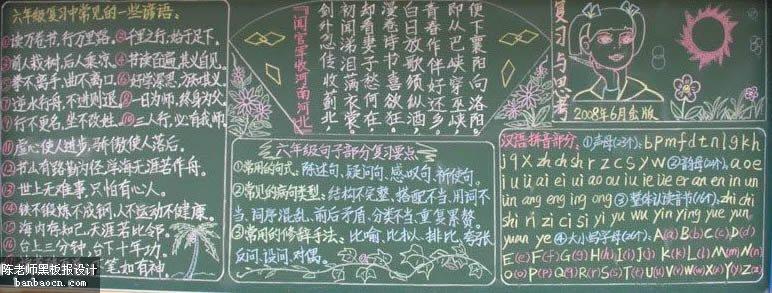 六年级复习中常见的一些谚语:
①读万卷书,行万里路.②千里之行,始于足下.
③前人栽树,后人乘凉.④书读百遍,其义自见.
⑤拳不离手,曲不离口.⑥好学深思,心知其义
⑦逆水行舟,不进则退.⑧一日为师,终身为父.
⑨行不更名,坐不改姓.⑩三人行,必有我师.
⑪虚心使人进步,骄傲使人落后.
⑫书山有路勤为径,学海无涯苦作舟.
⑬世上无难事,只怕有心人.
⑭铁不锻炼不成钢,人不运动不健康.
⑮海内存知己,天涯若比邻.
⑯台上三分钟,台下十年功.
笔如有神
《闻官军收河南河北》
剑外忽传收蓟北
初闻涕泪满衣裳
却看妻子愁何在
漫卷诗书喜欲狂
白日放歌须纵酒
青春作伴好还乡
即从巴峡穿巫峡
便下襄阳向洛阳
复习与思考
2008年6月出版
六年级句子部分复习要点
①常用的句式:陈述句、疑问句、感叹句、祈使句.
②常见的病句类型:结构不完整、搭配不当、用词不
当、词序混乱、前后矛盾、分类不当、重复累赘.
③常用的修辞手法:比喻、比拟、排比、夸张
反问、设问、对偶.
汉语拼音部分:①声母(23个):b p m f d t n l g k h
j q x zh ch sh r z c s y w ②韵母(24个):a o e
i u ü ai ei ui ao ou iu ie üe er an en in un
ün ang eng ing ong ③整体认读音节(16个):zhi chi
shi ri zi ci si yi wu yu yin ying yue yun
yuan ye ④大小写字母(26个):A(a) B(b) C(c) D(d)
E(e) F(f) G(g) H(h) I(i) J(j) K(k) L(l) M(m) N(n)
O(o) P(p) Q(q) R(r) S(s) T(t) U(u) V(v) W(w) X(x) Y(y) Z(z)
陈老师黑板报设计
banbaocn.com